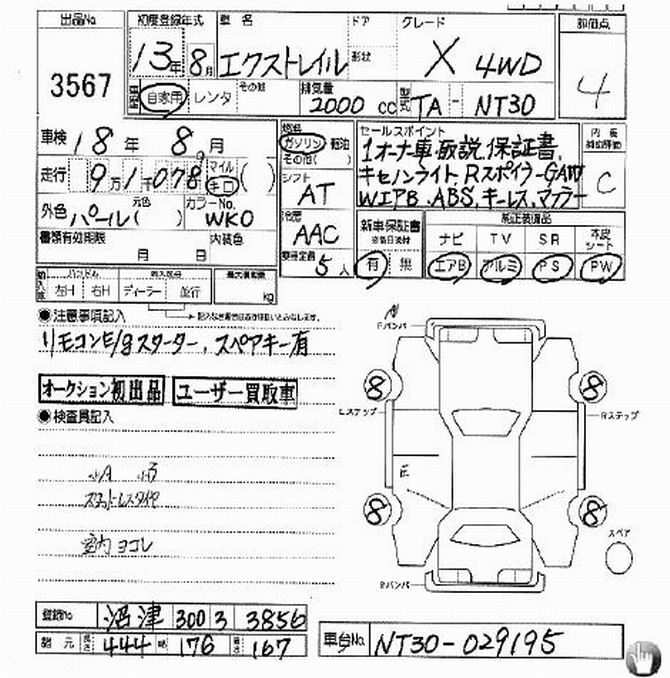 出品No 初度登録年式 車名 ドア 形状 グレード 評価点
3567 13年 8月 エクストレイル X 4WD 4
車歴 自家用 レンタ その他 排気量 2000 cc 型式 TA - NT30
車検 18年 8月
燃料 ガソリン 軽油 その他( )
セールスポイント
1オーナー車.取説.保証書.
キセノンライト Rスポイラー
WエアB.ABS.キーレス.マフラー
内装 補助評価 C
走行 9万1千078 マイル キロ ( )
シフト AT
外色 パール 元色 ( ) カラーNo. WK0
冷房 AAC
新車保証書 ※後日送付 有 無
純正装備品
ナビ TV SR 本皮シート
エアB アルミ PS PW
書類有効期限 月 日 内装色
乗車定員 5人
左H 右H ディーラー 並行 最大積載量 kg
●注意事項記入
リモコンE/gスターター.スペアキー有
オークション初出品 ユーザー買取車
●検査員記入
小A 小B
スタットレスタイヤ
室内ヨゴレ
Fバンパ
8 8
Lステップ Rステップ
E
8 8
スペア
Rバンパ
登録No 沼津 300 3 3856
諸元 長さ 444 幅 176 高さ 167
車台No. NT30-029195